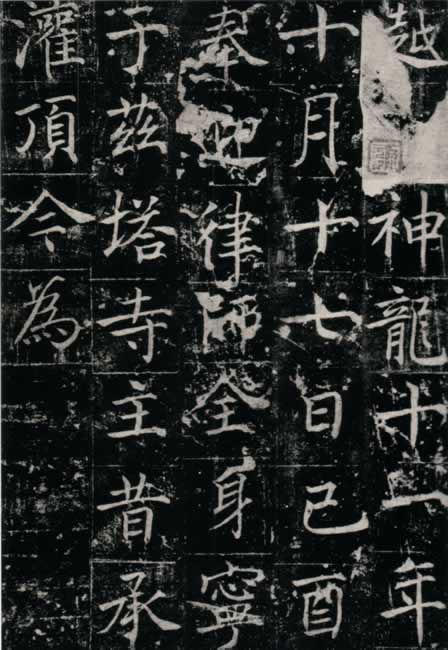 越神龍十一年
十月十七日己酉
奉迎律師全身寧
于兹塔寺主昔承
灌頂今為